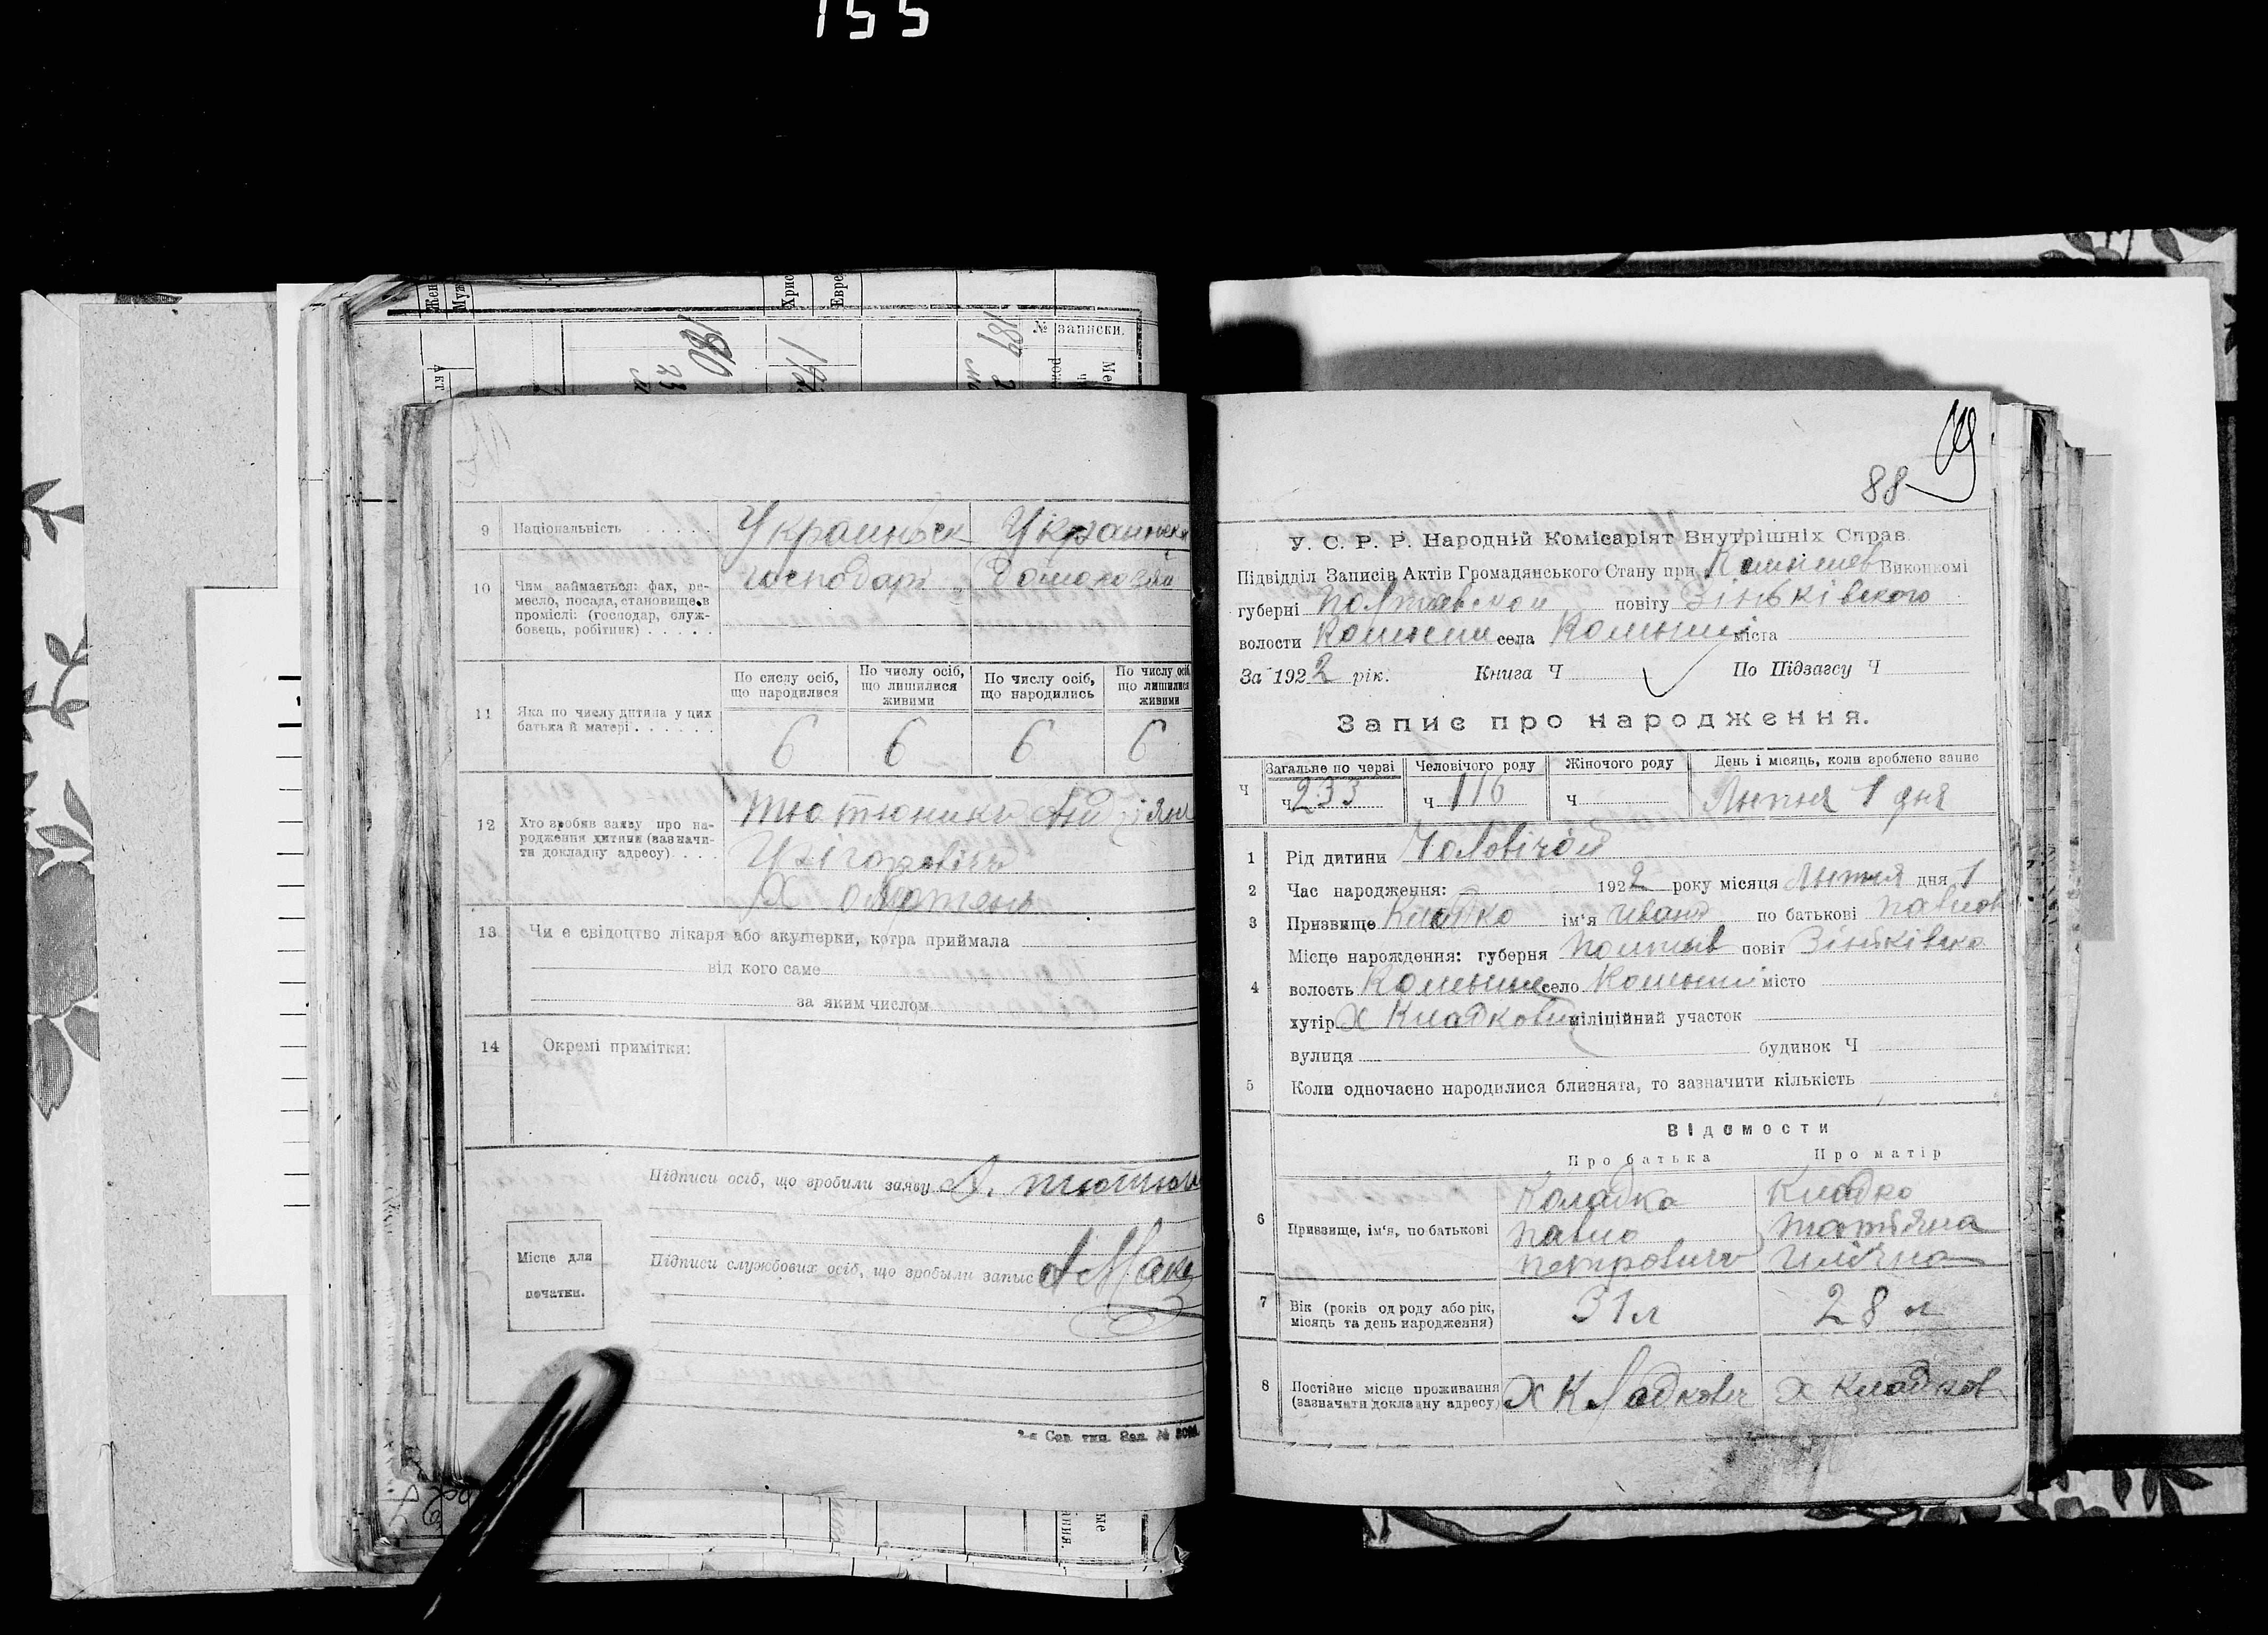 155
Жен
Муж
Хрис
Евре
№ записки.
189
1920
9 Національність Украиньск Украинька
10 Чим займається: фах, ре-
месло, посада, становище в
промислі: (господар, служ-
бовець, робітник) господарь домохозяй
11 Яка по числу дитина у цих
батька й матері
По числу осіб,
що народилися
По числу осіб,
що лишилися
живими
По числу осіб,
що народились
По числу осіб
що лишилися
живими
6 6 6 6
12 Хто зробив заяву про на-
родження дитини (зазначи-
ти докладну адресу)
Тютюника
13 Чи є свідоцтво лікаря або акушерки, котра приймала
від кого саме
за яким числом
14 Окремі примітки:
Підписи осіб, що зробили заяву А. тютюн
Місце для
печатки.
Підписи службових осіб, що зробыли запыс
2-я Сов. тип. Зал. №
88
У. С. Р. Р. Народній Комісаріят Внутрішніх Справ
Підвідділ Записів Актів Громадянського Стану при Комышев Виконкомі
губерні Полтавской повіту Зіньківского
волости Комыши села Комыши міста
За 1922 рік. Книга Ч По Підзагсу Ч
Запис про народження.
Ч Загальне по черзі Человічого роду Жіночого роду День і місяць, коли зроблено запис
ч 233 ч 116 ч Липня 1 дня
1 Рід дитини Чоловічой
2 Час народження: 1922 року місяця Липня дня 1
3 Призвище Кладко ім'я Иванъ по батькові павлов
Місце народження: губерня Полтав повіт Зіньківско
4 волость Комыше село Комыши місто
хутір х Кладкови міліційний участок
вулиця будинок Ч
5 Коли одночасно народилися близнята, то зазначити кількість
Відомости
Про батька Про матір
6 Призвище, ім'я, по батькові
Коладка Кладко
павло татьяна
петровичъ илична
7 Вік (років од роду або рік,
місяць та день народження) 31 л 28 л
8 Постійне місце проживання
(зазначати докладну адресу) Х Кладкови х Кладков